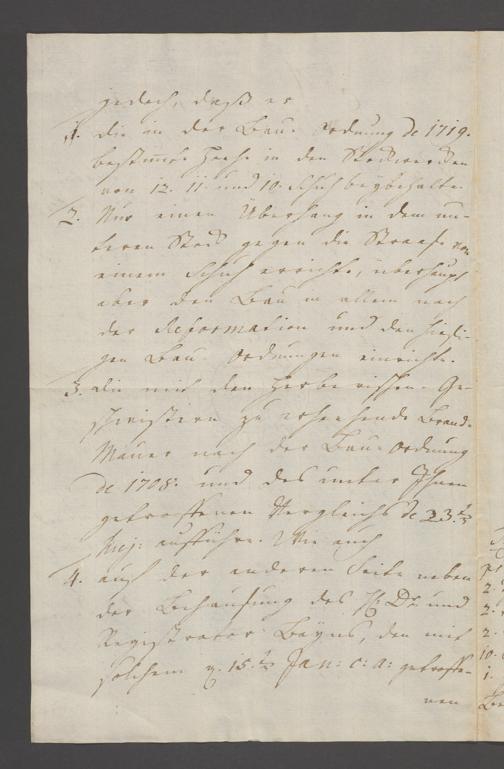 jedoch, daß er
1. die in der Bau- Ordnung de 1719.
bestimmte Höhe in den Stockwercken
von 12. 11. und 10. Schuh beybehalte.
2. Nur einen Überhang in dem un-
teren Stock gegen die Straase von
einem Schuh errichte, überhaupt
aber den Bau in allem nach
der Reformation und den hiesi-
gen Bau- Ordnungen einrichte.
3. die mit den Ge-
schwistern zu erhehende Brand-
Mauer nach der Bau-Ordnung
de 1708. und des unter Ihnen
getroffenen Vergleichs de 23.
Maj: aufführe. Wie auch
4. auf der anderen Seite neben
der Behausung des H. Dr. und
Registrator Beyns, den mit
solchem d. 15. Jan: c: a: getroffe-
nen